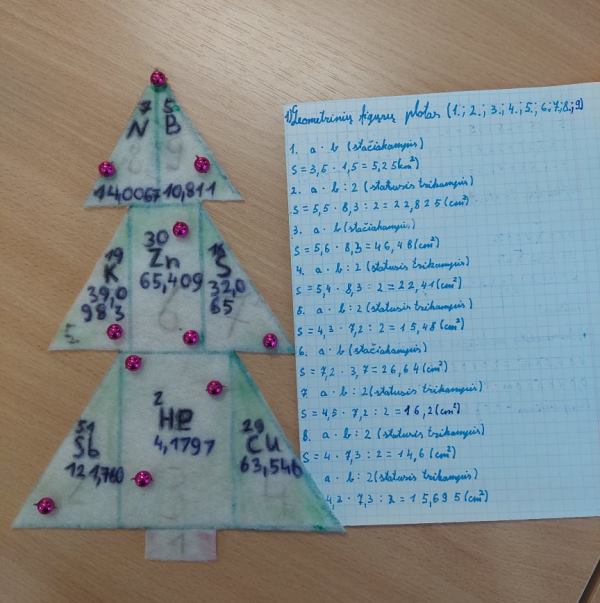 7 5
N B
8 9
14,0067 10,811
30
Zn
65,409
19
K
39,0
983
16
S
32,0
65
5 6 7
51
Sb
121,760
2
He
4,1797
29
Cu
63,546
1
1) Geometrinių figūrų plotas (1.; 2.; 3.; 4.; 5.; 6.; 7.; 8.; 9)
1. a · b (stačiakampis)
S = 3,5 · 1,5 = 5,25 cm²)
2. a · b : 2 (statusis trikampis)
S = 5,5 · 8,3 : 2 = 22,825 (cm²)
3. a · b (stačiakampis)
S = 5,6 · 8,3 = 46,48 (cm²)
4. a · b : 2 (statusis trikampis)
S = 5,4 · 8,3 : 2 = 22,41 (cm²)
5. a · b : 2 (statusis trikampis)
S = 4,3 · 7,2 : 2 = 15,48 (cm²)
6. a · b (stačiakampis)
S = 7,2 · 3,7 = 26,64 (cm²)
7 a · b : 2 (statusis trikampis)
S = 4,5 · 7,2 : 2 = 16,2 (cm²)
8. a · b : 2 (statusis trikampis)
S = 4 · 7,3 : 2 = 14,6 (cm²)
a · b : 2 (statusis trikampis)
4,2 · 7,3 : 2 = 15,695 (cm²)